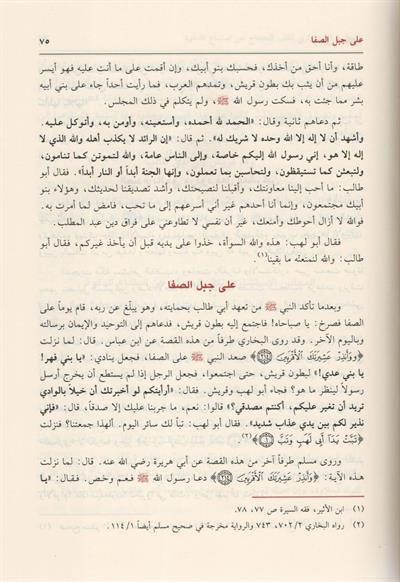 على جبل الصفا
٧٥
طاقة، وأنا أحق من أخذك، فحسبك بنو أبيك، وإن أقمت على ما أنت عليه فهو أيسر
عليهم من أن يثب بك بطون قريش، وتمدهم العرب، فما رأيت أحداً جاء على بني أبيه
بشر مما جئت به، فسكت رسول الله ﷺ، ولم يتكلم في ذلك المجلس.
ثم دعاهم ثانية وقال: «الحمد لله أحمده، وأستعينه، وأومن به، وأتوكل عليه.
وأشهد أن لا إله إلا الله وحده لا شريك له». ثم قال: «إن الرائد لا يكذب أهله والله الذي لا
إله إلا هو، إني رسول الله إليكم خاصة، وإلى الناس عامة، والله لتموتن كما تنامون،
ولتبعثن كما تستيقظون، ولتحاسبن بما تعملون، وإنها الجنة أبداً أو النار أبداً». فقال أبو
طالب: ما أحب إلينا معاونتك، وأقبلنا لنصيحتك، وأشد تصديقنا لحديثك، وهؤلاء بنو
أبيك مجتمعون، وإنما أنا أحدهم غير أني أسرعهم إلى ما تحب، فامض لما أمرت به.
فوالله لا أزال أحوطك وأمنعك، غير أن نفسي لا تطاوعني على فراق دين عبد المطلب.
فقال أبو لهب: هذه والله السوأة، خذوا على يديه قبل أن يأخذ غيركم، فقال أبو
طالب: والله لنمنعنّه ما بقينا(١).
على جبل الصفا
وبعدما تأكد النبي ﷺ من تعهد أبي طالب بحمايته، وهو يبلّغ عن ربه، قام يوماً على
الصفا فصرخ: يا صباحاه! فاجتمع إليه بطون قريش، فدعاهم إلى التوحيد والإيمان برسالته
وباليوم الآخر. وقد روى البخاري طرفاً من هذه القصة عن ابن عباس. قال: لما نزلت
﴿وَأَنذِرْ عَشِيرَتَكَ الْأَقْرَبِينَ ﴾ صعد النبي ﷺ على الصفا، فجعل ينادي: «يا بني فهر!
يا بني عدي!» لبطون قريش، حتى اجتمعوا، فجعل الرجل إذا لم يستطع أن يخرج أرسل
رسولاً لينظر ما هو؟ فجاء أبو لهب وقريش. فقال: «أرأيتكم لو أخبرتك أن خيلاً بالوادي
تريد أن تغير عليكم، أكنتم مصدقي؟» قالوا: نعم، ما جربنا عليك إلا صدقاً، قال: «فإني
نذير لكم بين يدي عذاب شديد». فقال أبو لهب: تباً لك سائر اليوم. ألهذا جمعتنا؟ فنزلت
﴿تَبَّتْ يَدَا أَبِي لَهَبٍ وَتَبَّ ﴾(٢).
وروى مسلم طرفاً آخر من هذه القصة عن أبي هريرة رضي الله عنه. قال: لما نزلت
هذه الآية: ﴿وَأَنذِرْ عَشِيرَتَكَ الْأَقْرَبِينَ ﴾ دعا رسول الله ﷺ فعم وخص. فقال: «يا
(١) ابن الأثير، فقه السيرة ص ٧٧، ٧٨.
(٢) رواه البخاري ٢/ ٧٠٢، ٧٤٣ والرواية مخرجة في صحيح مسلم أيضاً ١/ ١١٤.